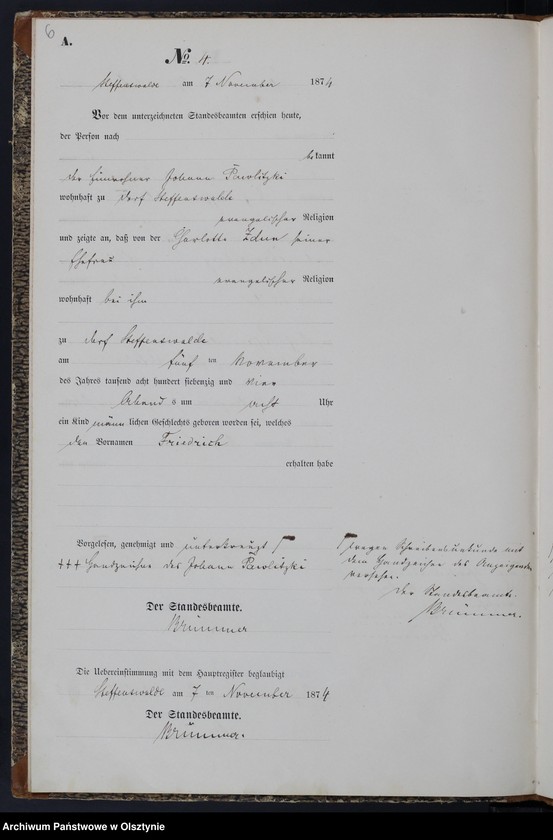 6
A.
No. 4.
Steffenswalde am 7 November 1874
Vor dem unterzeichneten Standesbeamten erschien heute,
der Person nach
bekannt
der Einwohner Johann Pawlitzki
wohnhaft zu Dorf Steffenswalde
evangelischer Religion
und zeigte an, daß von der Charlotte Zdun seiner
Ehefrau
evangelischer Religion
wohnhaft bei ihm
zu Dorf Steffenswalde
am fünf ten November
des Jahres tausend acht hundert siebenzig und vier
Abend s um acht Uhr
ein Kind männ lichen Geschlechts geboren worden sei, welches
den Vornamen Friedrich
erhalten habe
Vorgelesen, genehmigt und unterkreuzt
+++ Handzeichen des Johann Pawlitzki
wegen Schreibensunkunde mit
dem Handzeichen des Anzeigenden
versehen.
Der Standesbeamte.
Brümmer.
Der Standesbeamte.
Brümmer
Die Uebereinstimmung mit dem Hauptregister beglaubigt
Steffenswalde am 7 ten November 1874
Der Standesbeamte.
Brümmer.
Archiwum Państwowe w Olsztynie